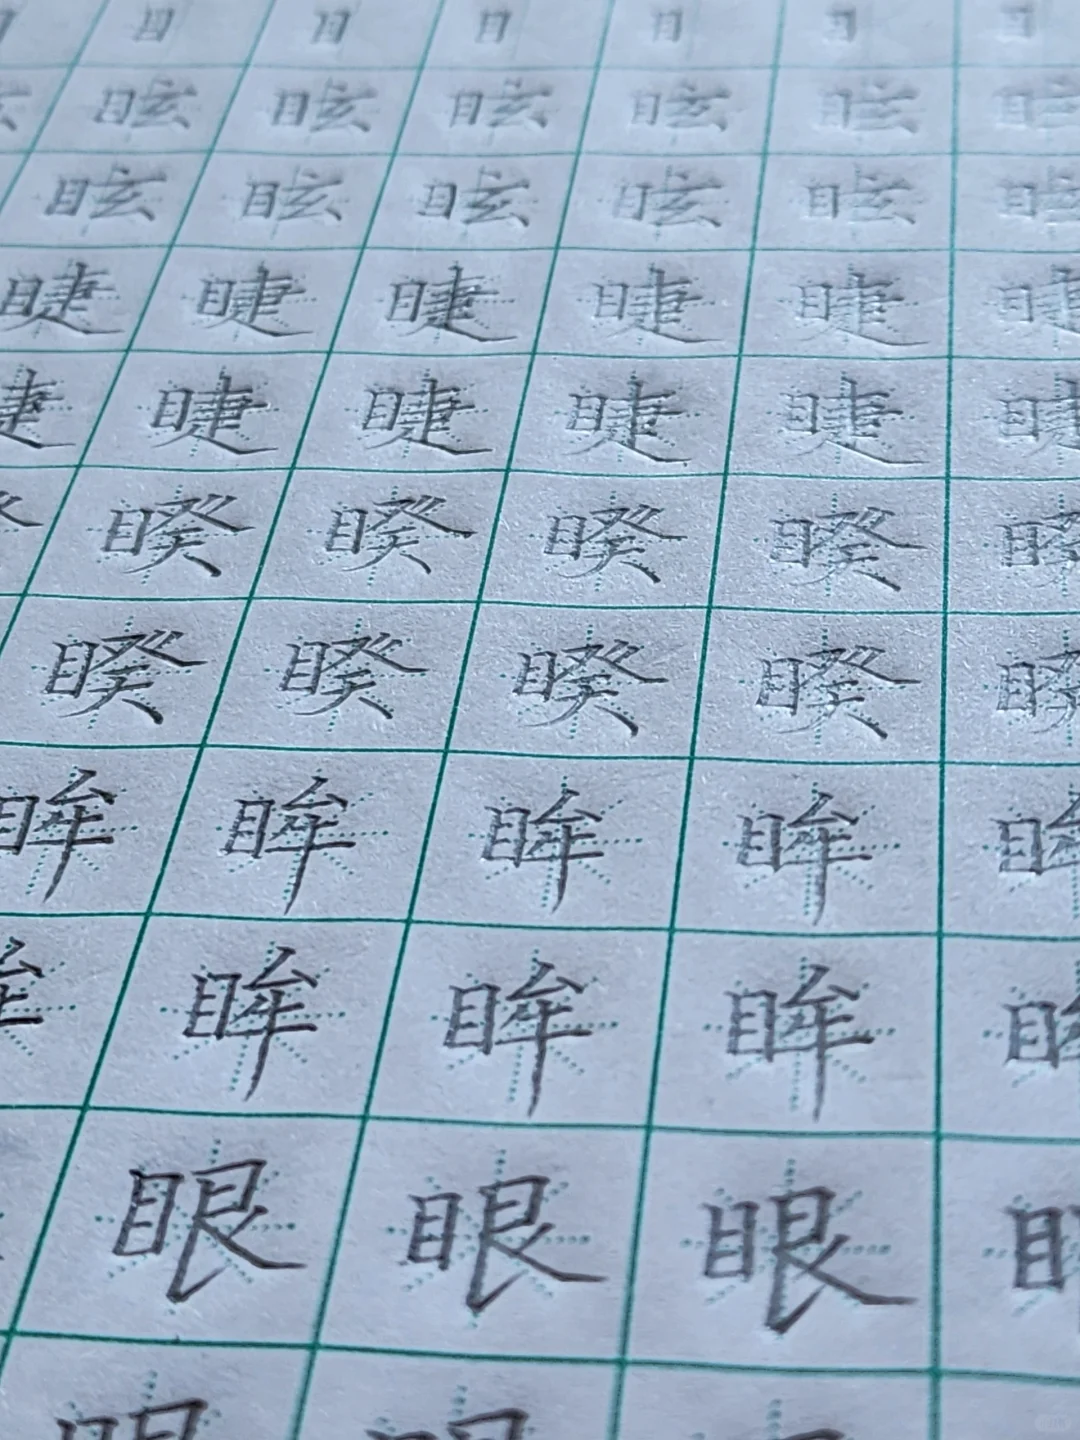 眩 眩 眩 眩 眩 眩
眩 眩 眩 眩 眩 眩
睫 睫 睫 睫 睫 睫
睫 睫 睫 睫 睫
睽 睽 睽 睽 睽
睽 睽 睽 睽 睽
眸 眸 眸 眸
眸 眸 眸
眼 眼 眼